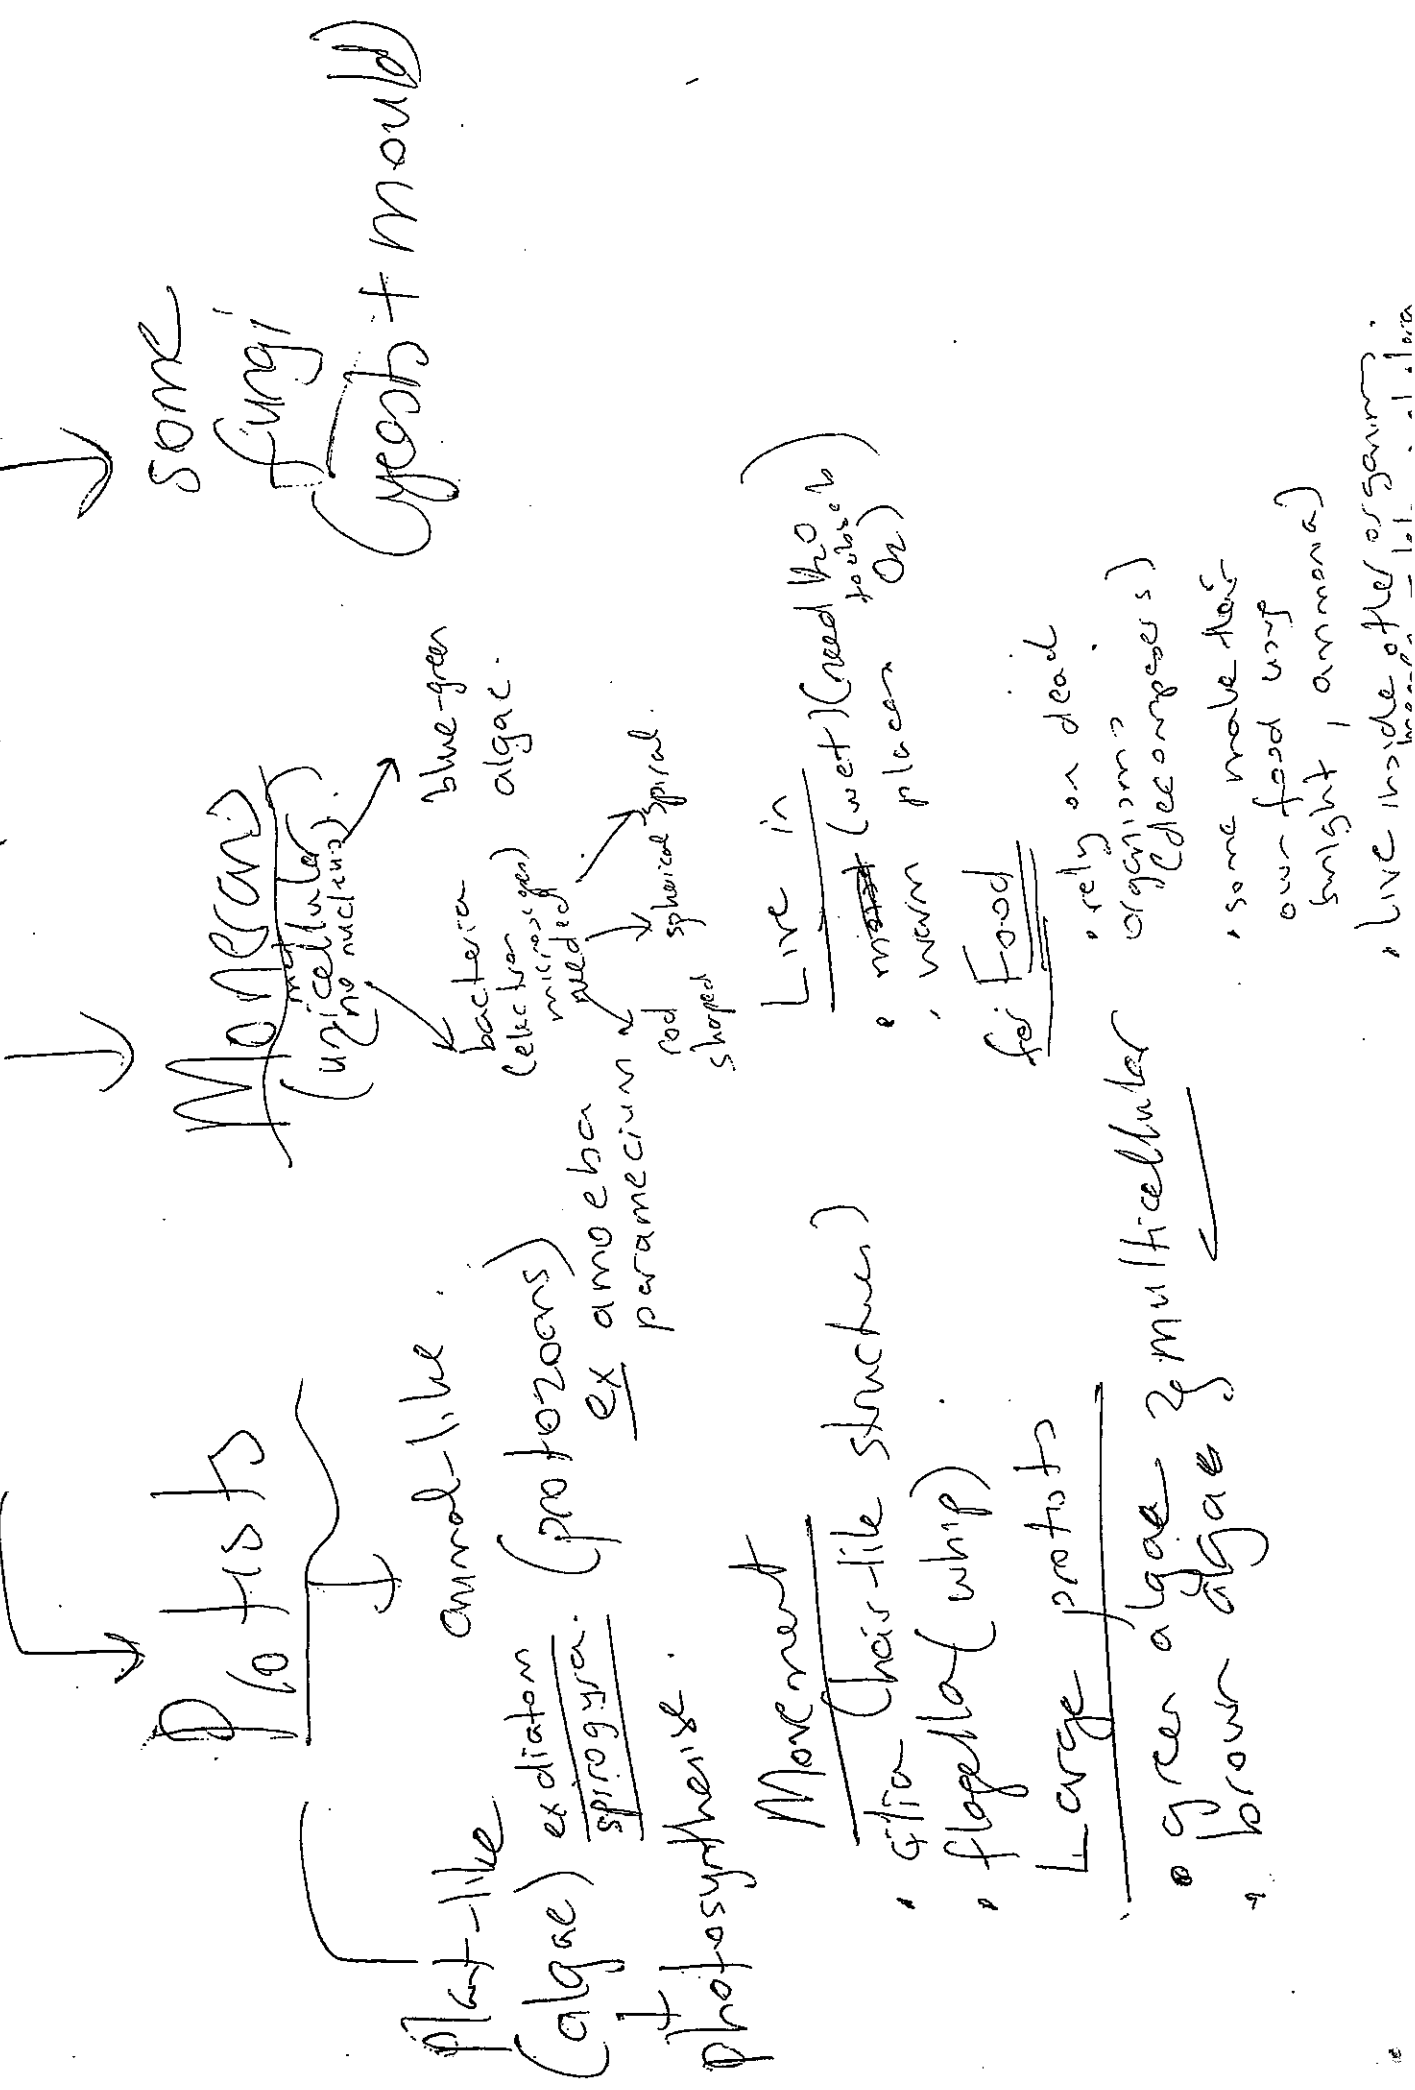 Protists
Plant-like
(algae) ex diatom
spirogyra.
photosynthesise.
animal-like.
(protozoans)
ex amoeba
paramecium
Movement
• cilia (hair-like structures)
• flagella (whip)
Large protists
• green algae } multicellular
• brown algae }
Monerans
(unicellular)
(no nucleus)
bacteria
(electron
microscope)
needed
rod
shaped
spherical
spiral.
blue-green
algae.
Live in
• moist (wet) (need H2O
to absorb
O2)
• warm places
for Food
• rely on dead
organisms
(decomposers)
• some make their
own food using
sunlight, ammonia)
• Live inside other organisms.
some
fungi
(yeasts + mould)